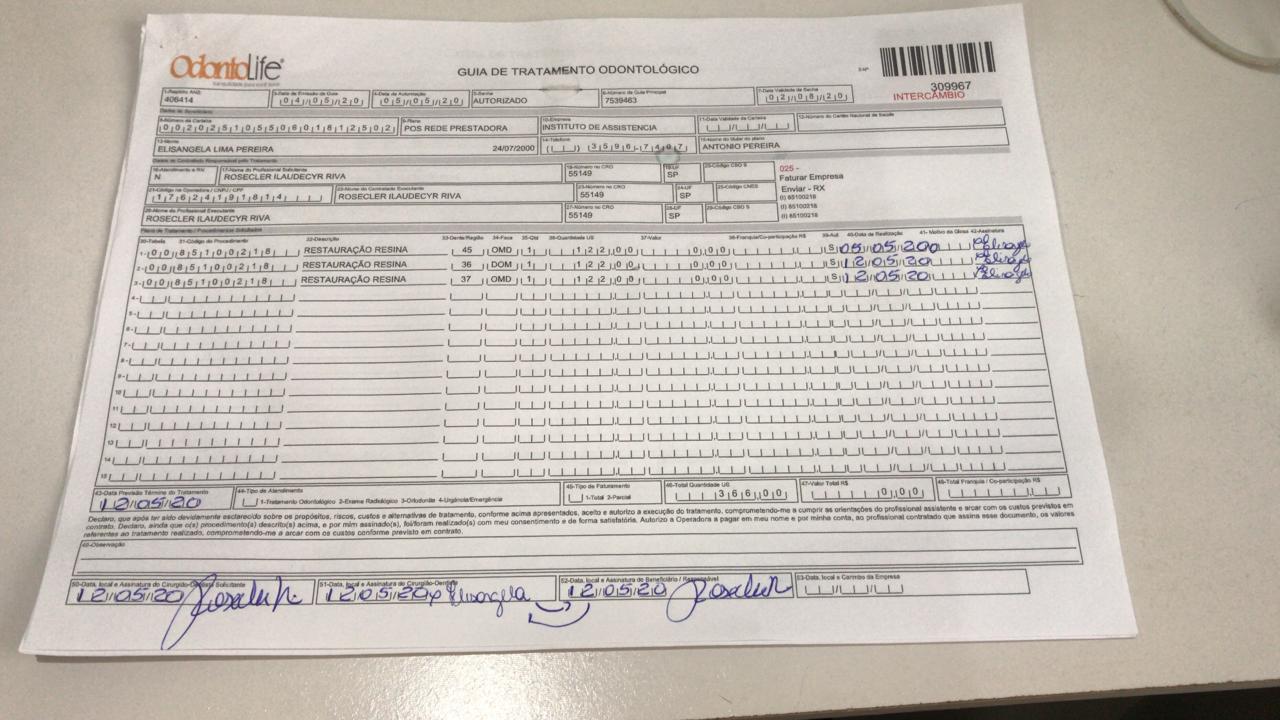 OdontoLife®
tranquilidade para você sorrir
GUIA DE TRATAMENTO ODONTOLÓGICO
2-Nº
309967
INTERCÂMBIO
1-Registro ANS 406414 3-Data de Emissão da Guia 04/05/20 4-Data de Autorização 05/05/20 5-Senha AUTORIZADO 6-Número da Guia Principal 7539463 7-Data Validade da Senha 02/08/20
Dados do Beneficiário
8-Número da Carteira 00202510550601811252 02 9-Plano POS REDE PRESTADORA 10-Empresa INSTITUTO DE ASSISTENCIA 11-Data Validade da Carteira 12-Número do Cartão Nacional de Saúde
13-Nome ELISANGELA LIMA PEREIRA 24/07/2000 14-Telefone ( ) 3596-7407 15-Nome do titular do plano ANTONIO PEREIRA
Dados do Contratado Responsável pelo Tratamento
16-Atendimento a RN N 17-Nome do Profissional Solicitante ROSECLER ILAUDECYR RIVA 18-Número no CRO 55149 19-UF SP 20-Código CBO S
025 -
Faturar Empresa
Enviar - RX
(I) 85100218
(I) 85100218
(I) 85100218
21-Código na Operadora / CNPJ / CPF 17624191814 22-Nome do Contratado Executante ROSECLER ILAUDECYR RIVA 23-Número no CRO 55149 24-UF SP 25-Código CNES
26-Nome do Profissional Executante ROSECLER ILAUDECYR RIVA 27-Número no CRO 55149 28-UF SP 29-Código CBO S
Plano de Tratamento / Procedimentos Solicitados
30-Tabela 31-Código do Procedimento 32-Descrição 33-Dente/Região 34-Face 35-Qtd 36-Quantidade US 37-Valor 38-Franquia/Co-participação R$ 39-Aut 40-Data de Realização 41- Motivo da Glosa 42-Assinatura
1- 00 85100218 RESTAURAÇÃO RESINA 45 OMD 1 122,00 0,00 S 05/05/20 Elisangela
2- 00 85100218 RESTAURAÇÃO RESINA 36 DOM 1 122,00 0,00 S 12/05/20 Elisangela
3- 00 85100218 RESTAURAÇÃO RESINA 37 OMD 1 122,00 0,00 S 12/05/20 Elisangela
4-
5-
6-
7-
8-
9-
10
11
12
13
14
15
43-Data Previsão Término do Tratamento 12/05/20 44-Tipo de Atendimento 1-Tratamento Odontológico 2-Exame Radiológico 3-Ortodontia 4-Urgência/Emergência 45-Tipo de Faturamento 1-Total 2-Parcial 46-Total Quantidade US 366,00 47-Valor Total R$ 0,00 48-Total Franquia / Co-participação R$
Declaro, que após ter sido devidamente esclarecido sobre os propósitos, riscos, custos e alternativas de tratamento, conforme acima apresentados, aceito e autorizo a execução do tratamento, comprometendo-me a cumprir as orientações do profissional assistente e arcar com os custos previstos em
contrato. Declaro, ainda que o(s) procedimento(s) descrito(s) acima, e por mim assinado(s), foi/foram realizado(s) com meu consentimento e de forma satisfatória. Autorizo a Operadora a pagar em meu nome e por minha conta, ao profissional contratado que assina esse documento, os valores
referentes ao tratamento realizado, comprometendo-me a arcar com os custos conforme previsto em contrato.
49-Observação
50-Data, local e Assinatura do Cirurgião-Dentista Solicitante 12/05/20 51-Data, local e Assinatura do Cirurgião-Dentista 12/05/20 Elisangela 52-Data, local e Assinatura do Beneficiário / Responsável 12/05/20 53-Data, local e Carimbo da Empresa